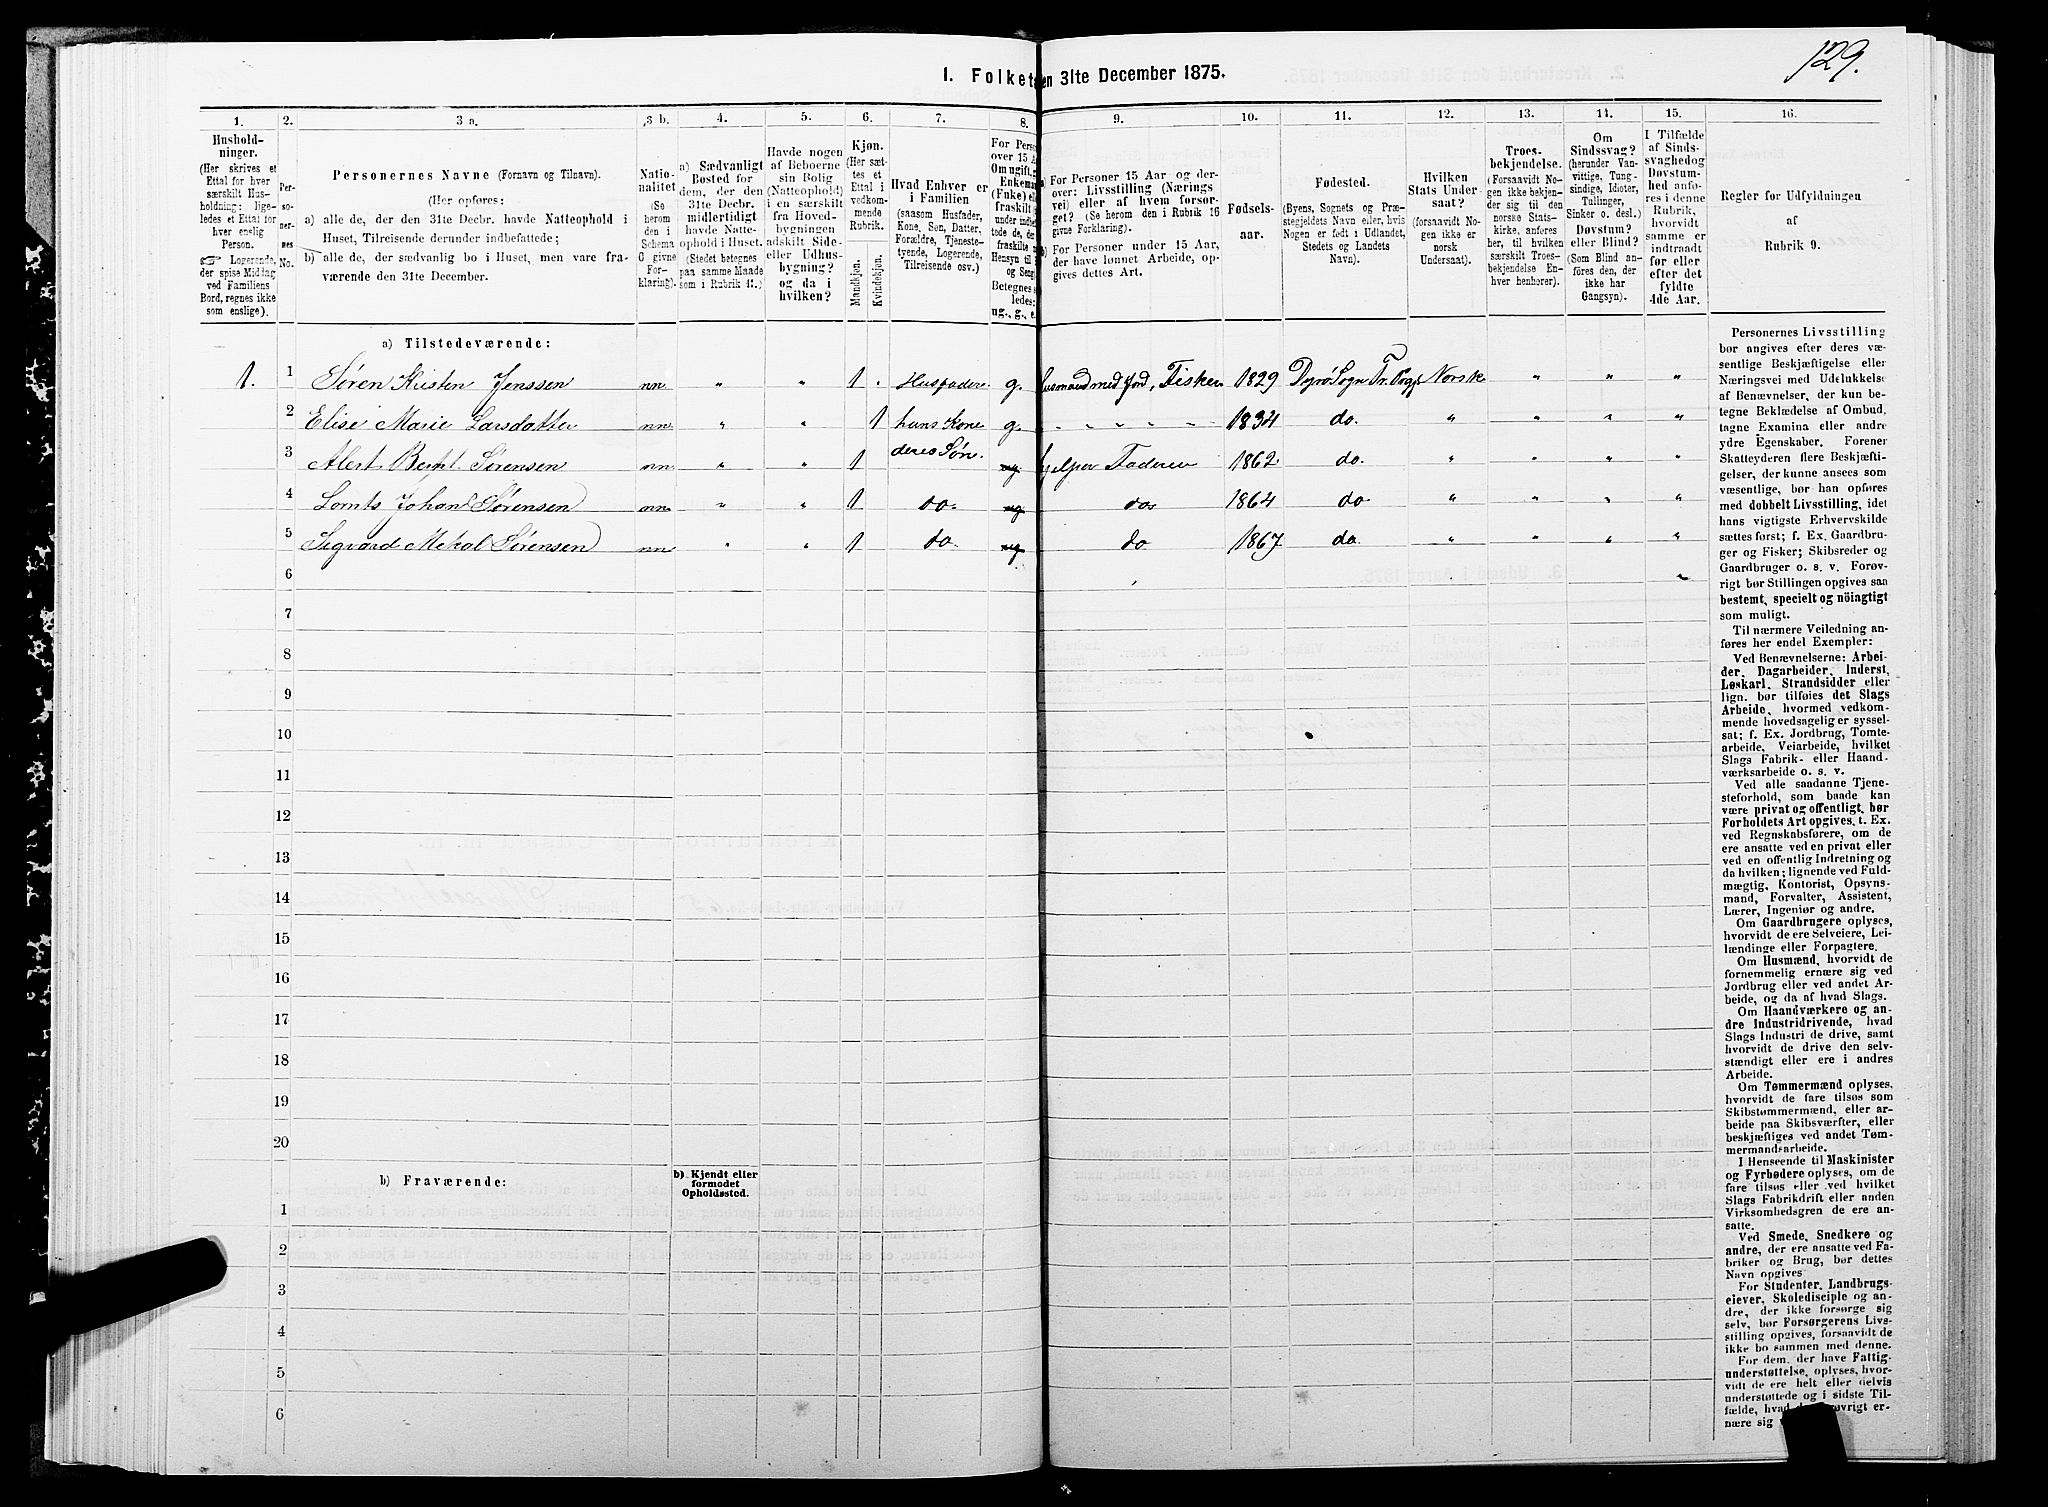 129.
1. Folket en 31te December 1875.
1. 2. 3 a. 3 b. 4. 5. 6. 7. 8. 9. 10. 11. 12. 13. 14. 15. 16.
Hushold-
ninger.
(Her skrives et
Ettal for hver
særskilt Hus-
holdning; lige-
ledes et Ettal for
hver enslig
Person.
☞ Logerende,
der spise Middag
ved Familiens
Bord, regnes ikke
som enslige).
Per-
so-
ner-
nes
No.
Personernes Navne (Fornavn og Tilnavn).
(Her opføres:
a) alle de, der den 31te Decbr. havde Natteophold i
Huset, Tilreisende derunder indbefattede;
b) alle de, der sædvanlig bo i Huset, men vare fra-
værende den 31te December.
Natio-
nalitet
(Se
herom
den i
Schema
C givne
For-
klaring).
a) Sædvanligt
Bosted for
dem, der den
31te Decbr.
midlertidigt
havde Natte-
ophold i Huset.
(Stedet betegnes
paa samme Maade
som i Rubrik 11.)
Havde nogen
af Beboerne
sin Bolig
(Natteophold)
i en særskilt
fra Hoved-
bygningen
adskilt Side-
eller Udhus-
bygning?
og da i
hvilken?
Kjøn.
(Her sæt-
tes et
Ettal i
vedkom-
mende
Rubrik.
Mandkjøn.
Kvindekjøn.
Hvad Enhver er
i Familien
(saasom Husfader,
Kone, Søn, Datter,
Forældre, Tjeneste-
tyende, Logerende,
Tilreisende osv.)
For Perso
over 15 A
Om ugift, g
Enkema
(Enke) ell
fraskilt
under indbe-
tede de,
fraskilte
Hensyn til
og Seng
Betegnes s
ledes:
ug., g., e.
a) For Personer 15 Aar og der-
over: Livsstilling (Nærings
vei) eller af hvem forsør-
get? (Se herom den i Rubrik 16
givne Forklaring).
b) For Personer under 15 Aar,
der have lønnet Arbeide, op-
gives dettes Art.
Fødsels-
aar.
Fødested.
(Byens, Sognets og Præ-
stegjeldets Navn eller, hvis
Nogen er født i Udlandet,
Stedets og Landets
Navn).
Hvilken
Stats Under-
saat?
(forsaavidt No-
gen ikke er
norsk
Undersaat).
Troes-
bekjendelse.
(Forsaavidt No-
gen ikke bekjen-
der sig til den
norske Stats-
kirke, anføres
her, til hvilken
særskilt Troes-
bekjendelse En-
hver henhører).
Om
Sindssvag?
(herunder Van-
vittige, Tung-
sindige, Idioter,
Tullinger,
Sinker o. desl.)
Døvstum?
eller Blind?
(Som Blind an-
føres den, der
ikke har
Gangsyn).
I Tilfælde
af Sinds-
svaghed og
Døvstum-
hed anfø-
res i denne
Rubrik,
hvorvidt
samme er
indtraadt
før eller
efter det
fyldte
4de Aar.
Regler for Udfyldningen
af
Rubrik 9.
a) Tilstedeværende:
1. 1 Søren Kristen Jenssen nn. " " 1 . Husfader. g. usmand med Jord, Fisker 1829 Dyrø Sogn Tr. Norsk " " "
2 Elise Marie Larsdatter nn. " " 1 hans Kone g. " " " " " 1834 do. " " " "
3 Alert Sørensen nn " " 1 deres Søn. ug jelper Faderen 1862 do. " " " "
4 Johan Sørensen nn. " " 1 do. ug do 1864 do " " " "
5 Sigvard Mekal Sørensen nn " " 1 do. ug do 1867 do " " " "
6
7
8
9
10
11
12
13
14
15
16
17
18
19
20
b) Fraværende:
b) Kjendt eller
formodet
Opholdssted.
1
2
3
4
5
6
Personernes Livsstilling
bør angives efter deres væ-
sentlige Beskjæftigelse eller
Næringsvei med Udelukkelse
af Benævnelser, der kun be-
tegne Beklædelse af Ombud,
tagne Examina eller andre
ydre Egenskaber. Forener
Skatteyderen flere Beskjæfti-
gelser, der kunne ansees som
væsentlige, bør han opføres
med dobbelt Livsstilling, idet
hans vigtigste Erhvervskilde
sættes først; f. Ex. Gaardbru-
ger og Fisker; Skibsreder og
Gaardbruger o. s. v. Forøv-
rigt bør Stillingen opgives saa
bestemt, specielt og nöiagtigt
som muligt.
Til nærmere Veiledning an-
føres her endel Exempler:
Ved Benævnelserne: Arbei-
der, Dagarbeider, Inderst,
Løskarl, Strandsidder eller
lign. bør tilføies det Slags
Arbeide, hvormed vedkom-
mende hovedsagelig er syssel-
sat; f. Ex. Jordbrug, Tomte-
arbeide, Veiarbeide, hvilket
Slags Fabrik- eller Haand-
værksarbeide o. s. v.
Ved alle saadanne Tjene-
steforhold, som baade kan
være privat og offentligt, bør
Forholdets Art opgives, t. Ex.
ved Regnskabsførere, om de
ere ansatte ved en privat eller
ved en offentlig Indretning og
da hvilken; lignende ved Fuld-
mægtig, Kontorist, Opsyns-
mand, Forvalter, Assistent,
Lærer, Ingeniør og andre.
Om Gaardbrugere oplyses,
hvorvidt de ere Selveiere, Lei-
lændinge eller Forpagtere.
Om Husmænd, hvorvidt de
fornemmelig ernære sig ved
Jordbrug eller ved andet Ar-
beide, og da af hvad Slags.
Om Haandværkere og an-
dre Industridrivende, hvad
Slags Industri de drive, samt
hvorvidt de drive den selv-
stændigt eller ere i andres
Arbeide.
Om Tømmermænd oplyses,
hvorvidt de fare tilsøs som
Skibstømmermænd, eller ar-
beide paa Skibsværfter, eller
beskjæftiges ved andet Tøm-
mermandsarbeide.
I Henseende til Maskinister
og Fyrbødere oplyses, om de
fare tilsøs eller ved hvilket
Slags Fabrikdrift eller anden
Virksomhedsgren de ere an-
satte.
Ved Smede, Snedkere og
andre, der ere ansatte ved Fa-
briker og Brug, bør dettes
Navn opgives
For Studenter, Landbrugs-
eiever, Skoledisciple og an-
dre, der ikke forsørge sig
selv, bør Forsørgerens Livs-
stilling opgives, forsaavidt de
ikke bo sammen med denne.
For dem, der have Fattig-
understøttelse, oplyses, hvor-
vidt de ere helt eller delvis
understøttede og i sidste Til-
fælde, hvad øvrigt er-
nære sig